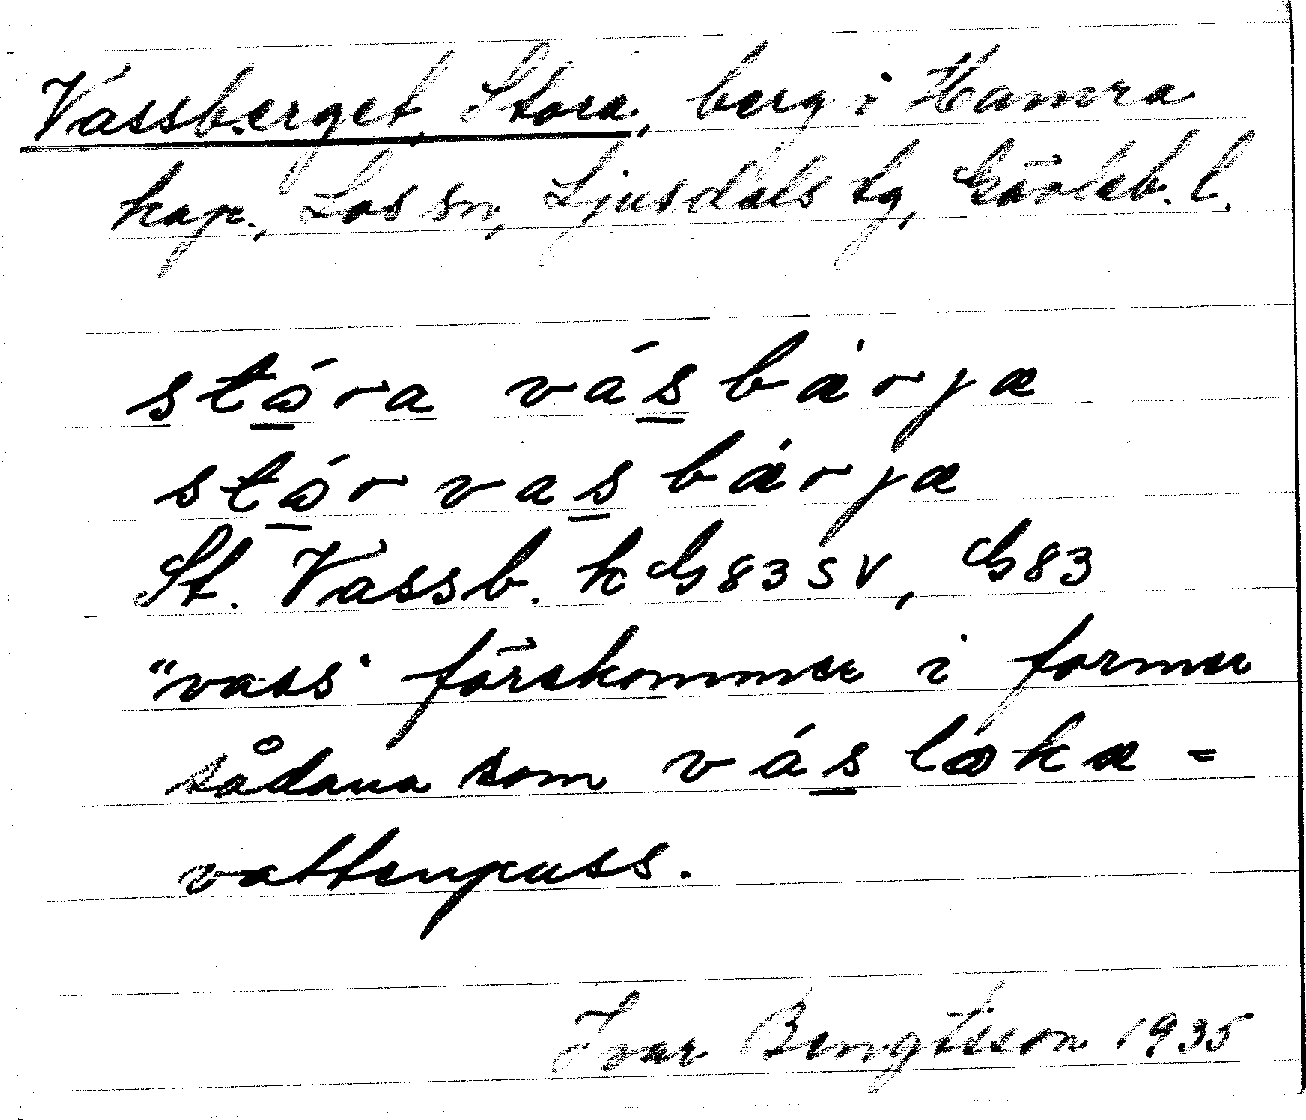 Vassberget, Stora, berg i Hamra
kap., Los sn, Ljusdals tg, Gävleb. l.
stó̲ra vás̲bärjæ
stó̲r vas̲bä́rjæ
St. Vassb. k G83 SV, G83
"vass" förekommer i former
sådana som vás̲ lɷkæ =
vattenpuss.
Ivar Bengtsson 1935